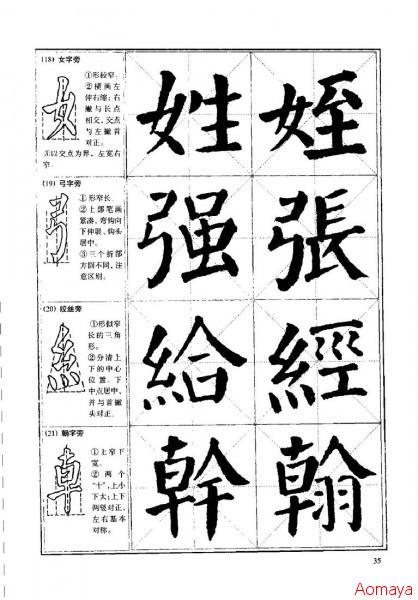 (18) 女字旁
①形较窄。
②横画左
伸右缩；右
撇与长点
相交，交点
与左撇首
对正。
③以交点为界，左宽右
窄。
姓 姪
(19) 弓字旁
①形窄长。
②上部笔画
紧凑，弯钩向
下伸展，钩头
居中。
③三个折部
方圆不同，注
意区别。
强 張
(20) 绞丝旁
①形似窄
长的三角
形。
②分清上
下的中心
位置。下
中点居中，
并与首撇
头对正。
給 經
(21) 朝字旁
①上窄下
宽。
②两个
“十”，上小
下大；上下
两竖对正，
左右基本
对称。
幹 翰
35
Aomaya